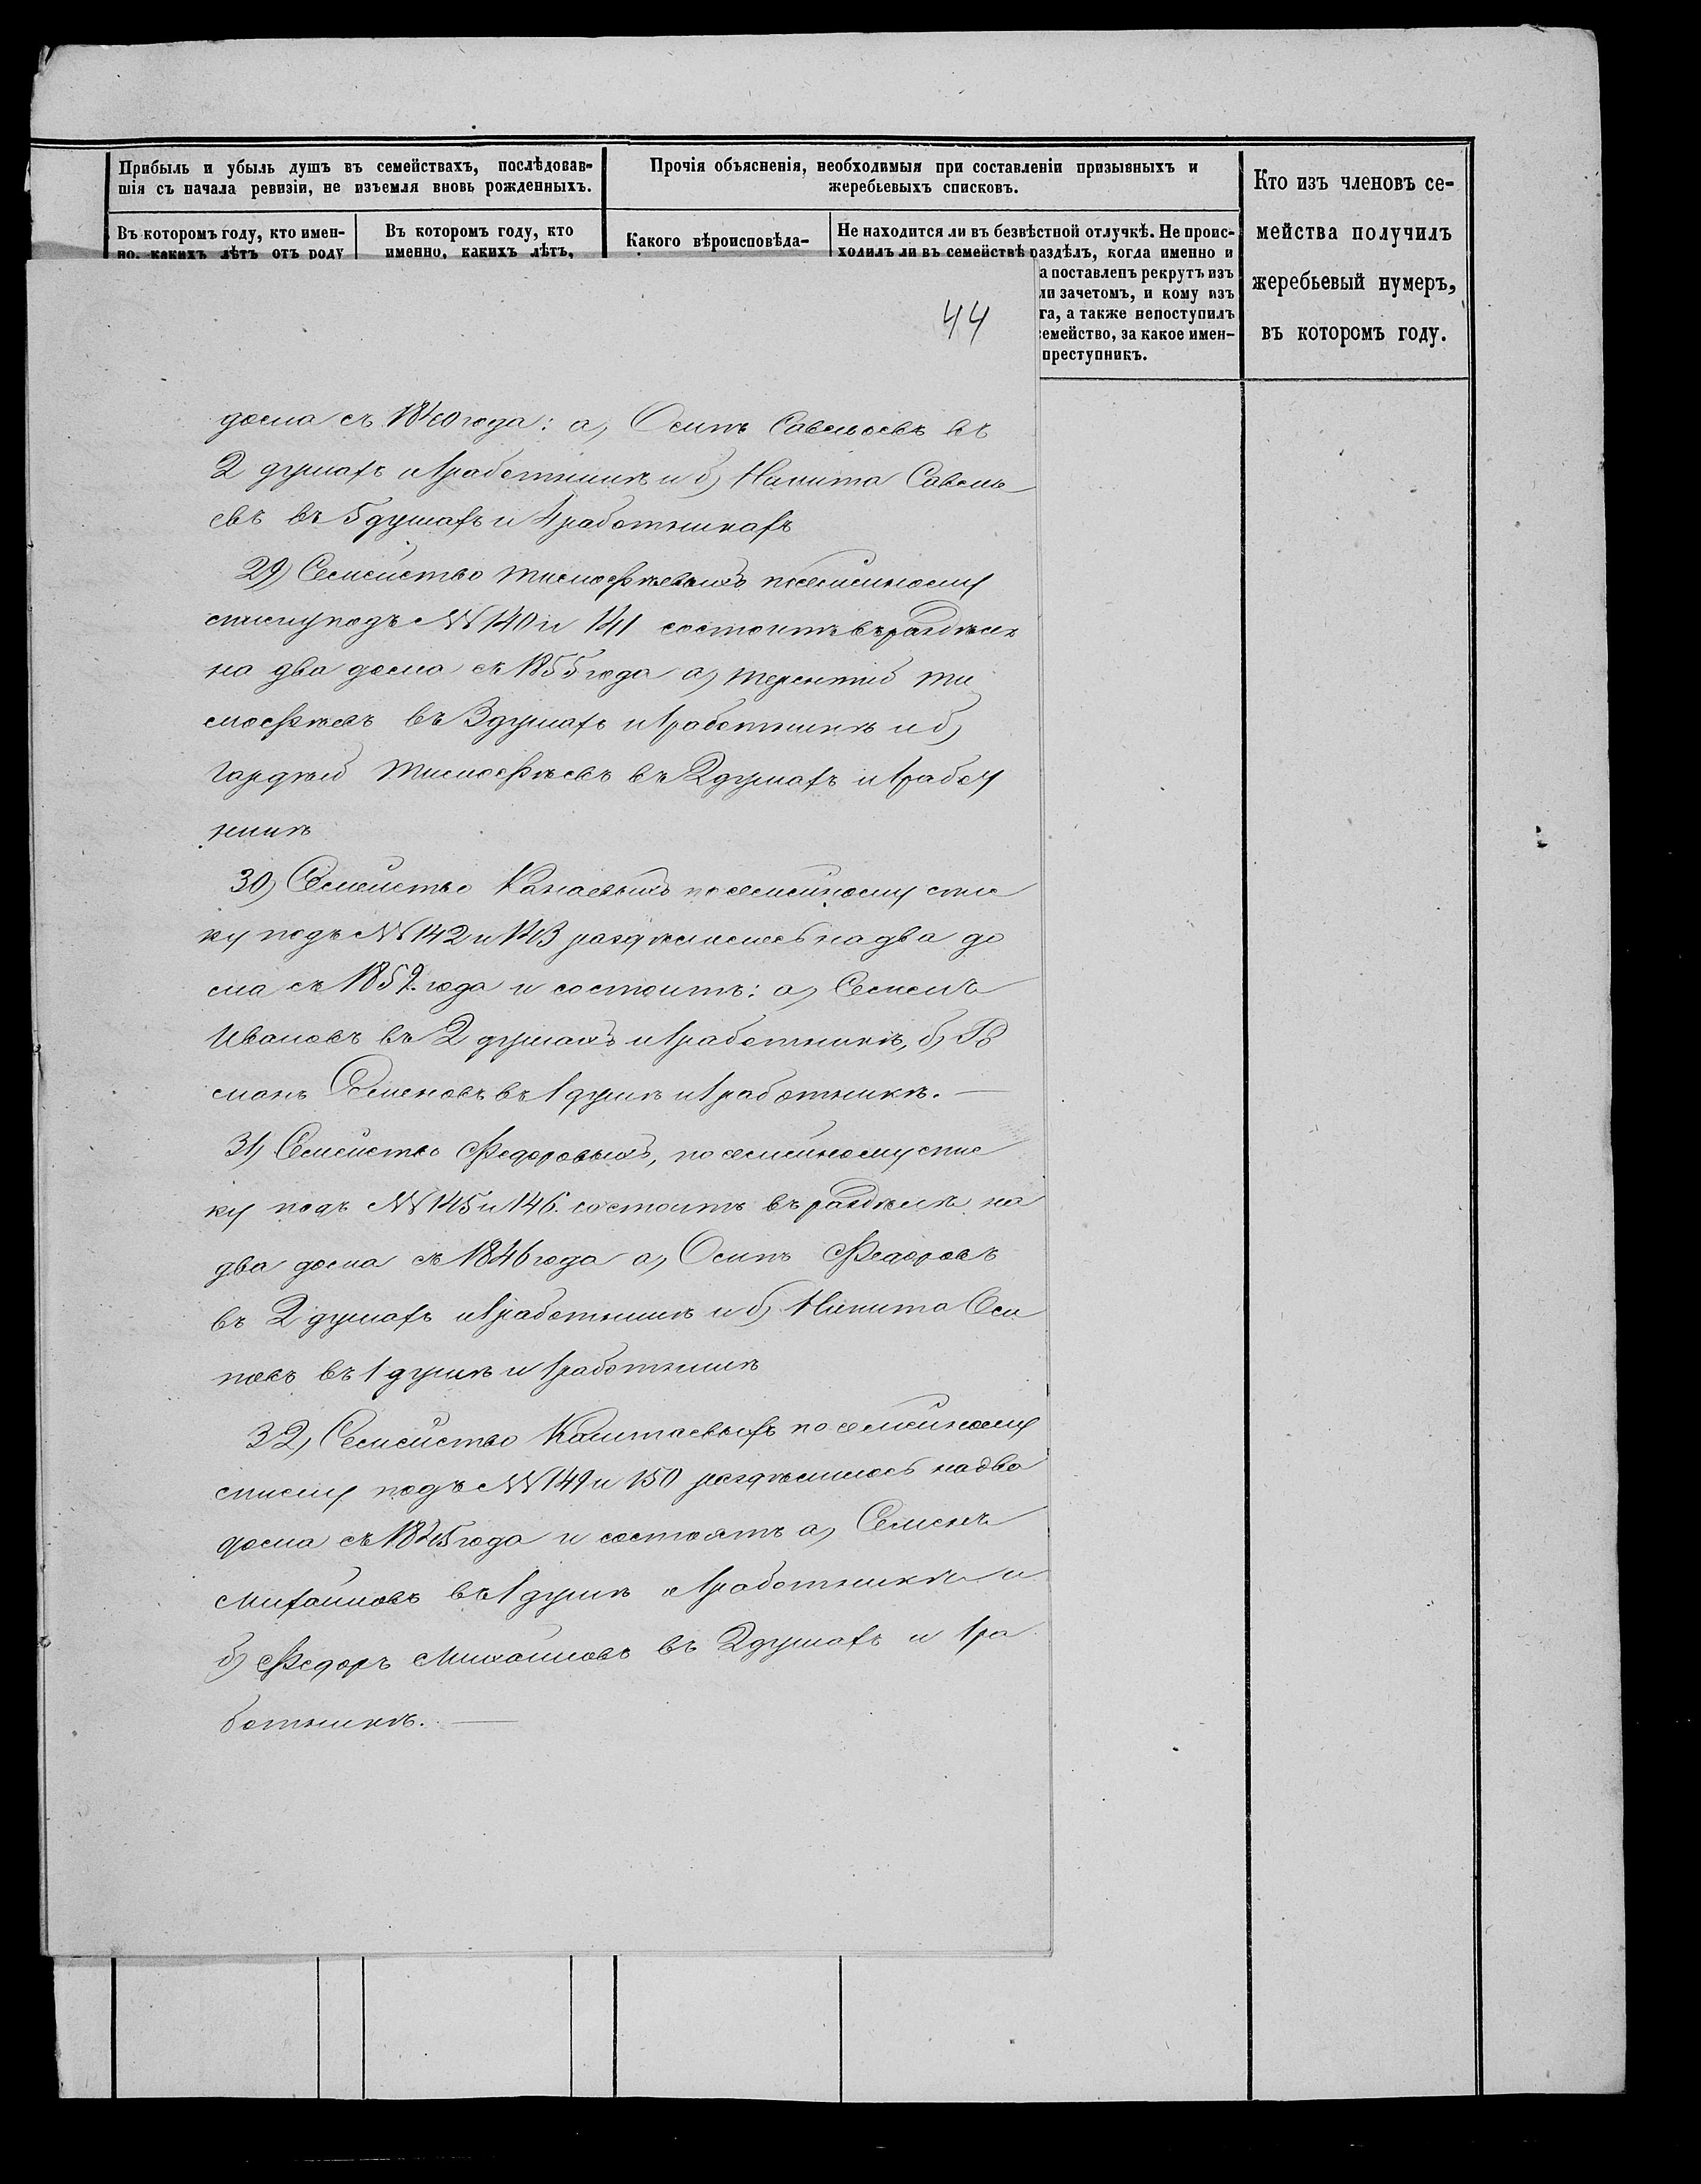 Прибыль и убыль душъ въ семействахъ, послѣдовав-
шія съ начала ревизіи, не изъемля вновь рожденныхъ.
Прочія объясненія, необходимыя при составленіи призывныхъ и
жеребьевыхъ списковъ.
Кто изъ членовъ се-
мейства получилъ
жеребьевый нумеръ,
въ которомъ году.
Въ которомъ году, кто имен-
но, какихъ лѣтъ отъ роду
Въ которомъ году, кто
именно, какихъ лѣтъ,
Какого вѣроисповѣда-
Не находится ли въ безвѣстной отлучкѣ. Не проис-
ходилъ ли въ семействѣ раздѣлъ, когда именно и
а поставленъ рекрутъ изъ
ли зачетомъ, и кому изъ
га, а также непоступилъ
семейство, за какое имен-
преступникъ.
44
дома съ 1840 года: а) Осипъ Савельевъ въ
2 душахъ и 1 работникѣ и б) Никита Савель
евъ въ 5 душахъ и 4 работникахъ
29) Семейство Тимофѣевыхъ посемейному
списку подъ №№ 140 и 141 состоитъ въ раздѣлѣ
на два дома съ 1855 года а) Терентий Ти
мофѣевъ въ 3 душахъ и 1 работникѣ и б)
Гордѣй Тимофѣевъ въ 2 душахъ и 1 работ
никѣ
30) Семейство Канаевыхъ по семейному спис
ку подъ №№ 142 и 143 раздѣлилось на два до
ма съ 1859 года и состоитъ: а) Семенъ
Ивановъ въ 2 душахъ и 1 работникѣ, б) Ро
манъ Семеновъ въ 1 душѣ и 1 работникѣ. —
31) Семейство Федоровыхъ, по семейному спис
ку подъ №№ 145 и 146. состоитъ въ раздѣлѣ на
два дома съ 1846 года а) Осипъ Федоровъ
въ 2 душахъ и 1 работникѣ и б) Никита Оси
повъ въ 1 душѣ и 1 работникѣ
32) Семейство Каштаевыхъ по семейному
списку подъ №№ 149 и 150 раздѣлилось на два
дома съ 1845 года и состоятъ а) Семенъ
Михайловъ въ 1 душѣ и 1 работникѣ и
б) Федоръ Михайловъ въ 2 душахъ и 1 ра
ботникѣ. —